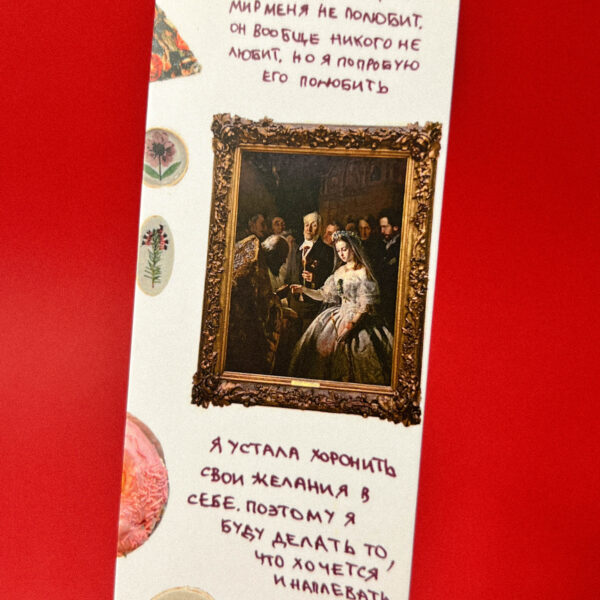 МИР МЕНЯ НЕ ПОЛЮБИТ,
ОН ВООБЩЕ НИКОГО НЕ
ЛЮБИТ, НО Я ПОПРОБУЮ
ЕГО ПОЛЮБИТЬ
Я УСТАЛА ХОРОНИТЬ
СВОИ ЖЕЛАНИЯ В
СЕБЕ. ПОЭТОМУ Я
БУДУ ДЕЛАТЬ ТО,
ЧТО ХОЧЕТСЯ
И НАПЛЕВАТЬ